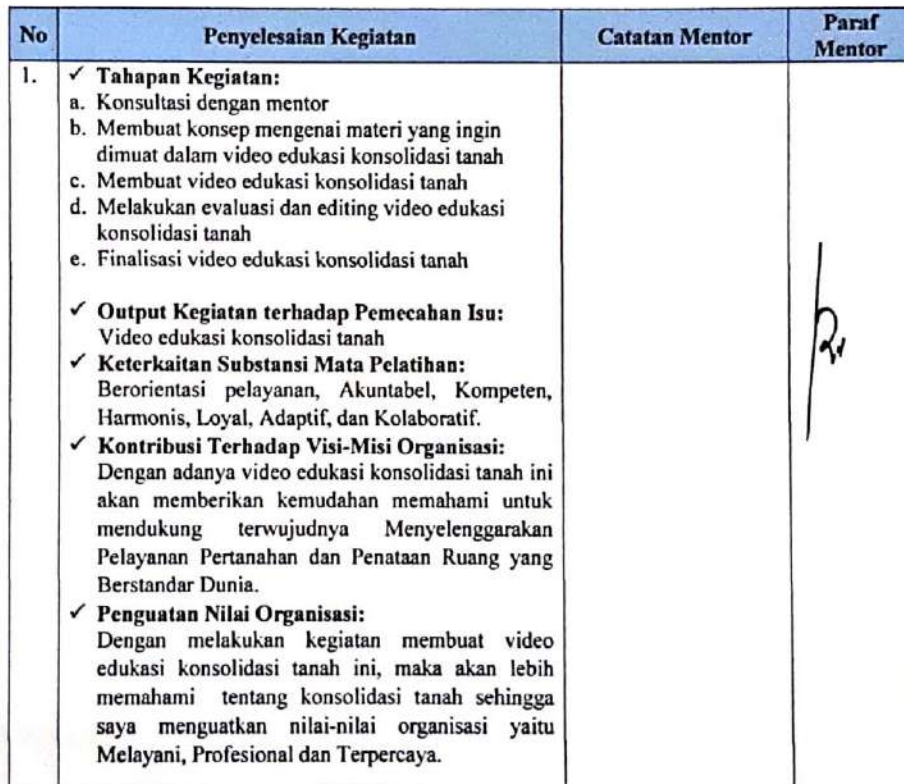 No Penyelesaian Kegiatan Catatan Mentor Paraf
Mentor
1. ✓ Tahapan Kegiatan:
a. Konsultasi dengan mentor
b. Membuat konsep mengenai materi yang ingin
dimuat dalam video edukasi konsolidasi tanah
c. Membuat video edukasi konsolidasi tanah
d. Melakukan evaluasi dan editing video edukasi
konsolidasi tanah
e. Finalisasi video edukasi konsolidasi tanah
✓ Output Kegiatan terhadap Pemecahan Isu:
Video edukasi konsolidasi tanah
✓ Keterkaitan Substansi Mata Pelatihan:
Berorientasi pelayanan, Akuntabel, Kompeten,
Harmonis, Loyal, Adaptif, dan Kolaboratif.
✓ Kontribusi Terhadap Visi-Misi Organisasi:
Dengan adanya video edukasi konsolidasi tanah ini
akan memberikan kemudahan memahami untuk
mendukung terwujudnya Menyelenggarakan
Pelayanan Pertanahan dan Penataan Ruang yang
Berstandar Dunia.
✓ Penguatan Nilai Organisasi:
Dengan melakukan kegiatan membuat video
edukasi konsolidasi tanah ini, maka akan lebih
memahami tentang konsolidasi tanah sehingga
saya menguatkan nilai-nilai organisasi yaitu
Melayani, Profesional dan Terpercaya.